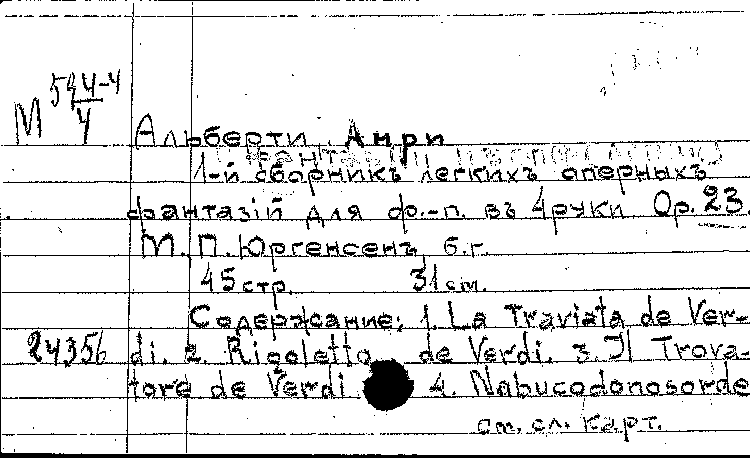 М 544-4/4
Альберти, Анри
1-й сборникъ легкихъ оперныхъ
фантазій для ф.-п. въ 4 руки Op. 23.
М. П. Юргенсенъ, б.г.
45 стр. 31 см.
Содержание: 1. La Traviata de Ver-
24356 di. 2. Rigoletto de Verdi. 3. Il Trova-
tore de Verdi 4. Nabucodonosor de
см. сл. карт.